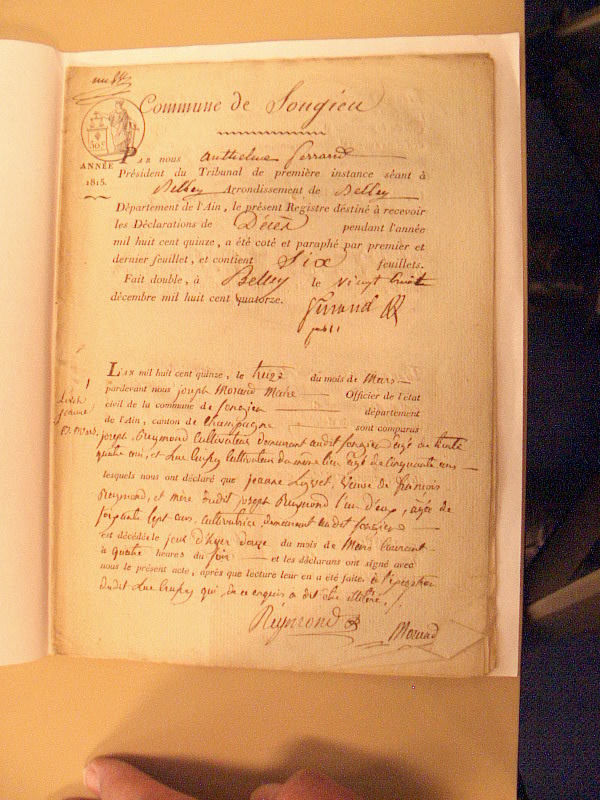 Commune de Songieu
30c
ANNÉE
1815.
PAR nous Anthelme Ferrand
Président du Tribunal de première instance séant à
Belley Arrondissement de Belley
Département de l'Ain, le présent Registre destiné à recevoir
les Déclarations de Décès pendant l'année
mil huit cent quinze, a été coté et paraphé par premier et
dernier feuillet, et contient Six feuillets.
Fait double, à Belley le vingt huit
décembre mil huit cent quatorze.
Ferrand
L'AN mil huit cent quinze, le treize du mois de Mars
pardevant nous joseph Morand Maire Officier de l'état
civil de la commune de Songieu département
de l'Ain, canton de Champagne sont comparus
1
jeanne
12 mars
joseph Reymond Cultivateur demeurant audit Songieu âgé de trente
quatre ans, et Luc Cultivateur du même lieu âgé de cinquante ans
lesquels nous ont déclaré que jeanne Veuve de françois
Reymond, et mère dudit joseph Reymond l'un d'eux, agée de
soixante sept ans, Cultivatrice, demeurant audit Songieu
est décédée le jour d'hyer douze du mois de Mars Courant
à quatre heures du soir et les déclarans ont signé avec
nous le présent acte, après que lecture leur en a été faite. à l'exception
dudit Luc qui, de ce enquis a dit être illitéré.
Reymond
Morand